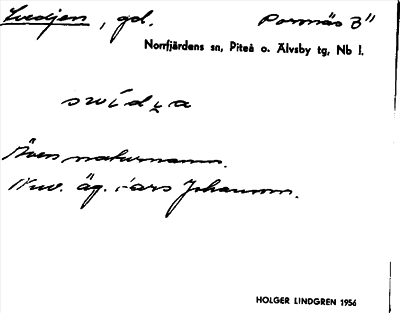 Svedjen, gd. Porsnäs 3"
Norrfjärdens sn, Piteå o. Älvsby tg, Nb l.
Även naturnamn.
Nuv. äg. Lars Johansson.
HOLGER LINDGREN 1956